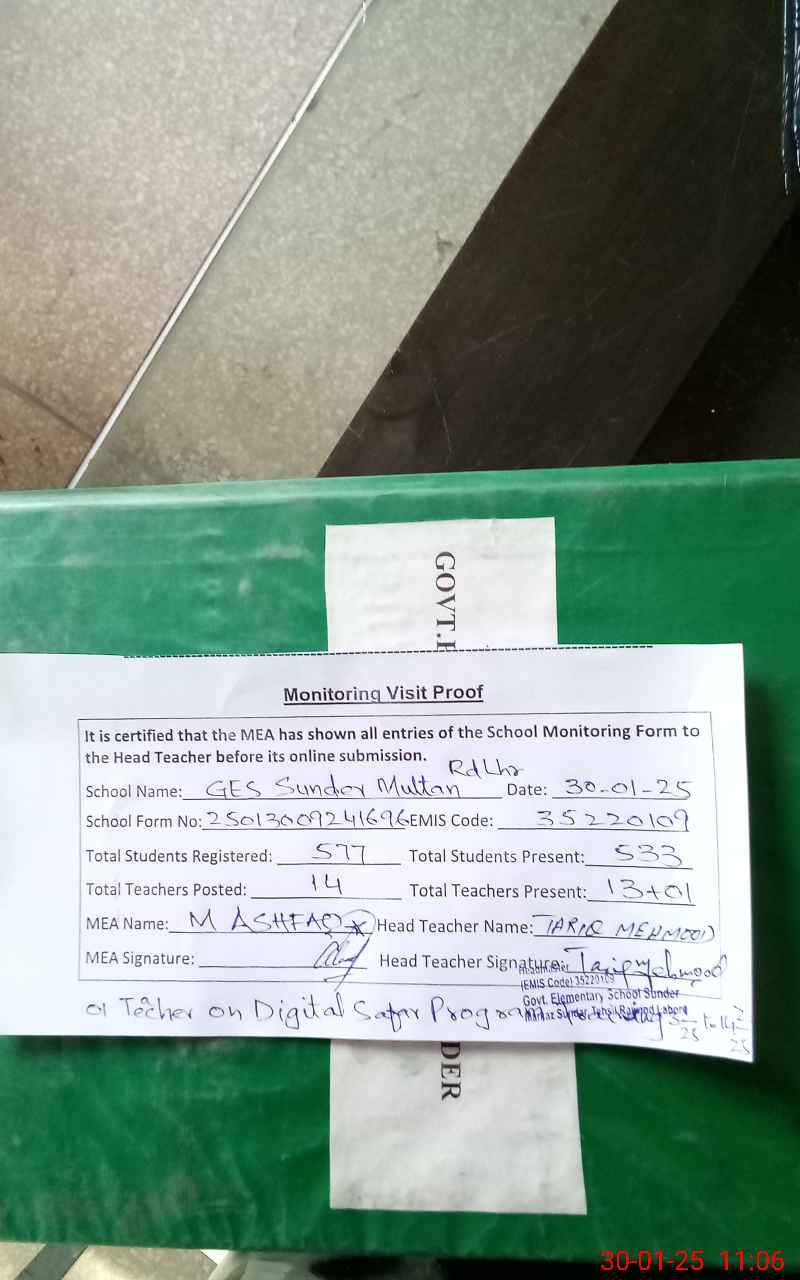 GOVT.
Monitoring Visit Proof
It is certified that the MEA has shown all entries of the School Monitoring Form to
the Head Teacher before its online submission.
School Name: GES Sunder Multan Rd Lhr Date: 30-01-25
School Form No: 25013009241696 EMIS Code: 35220109
Total Students Registered: 577 Total Students Present: 533
Total Teachers Posted: 14 Total Teachers Present: 13+01
MEA Name: M ASHFAQ Head Teacher Name: TARIQ MEHMOOD
MEA Signature: Head Teacher Signature: Tariq Mehmood
Headmaster
(EMIS Code) 35220109
Govt. Elementary School Sunder
Markaz Sundar, Tehsil Raiwind Lahore
01 Techer on Digital Safar Program
DER
30-01-25 11:06